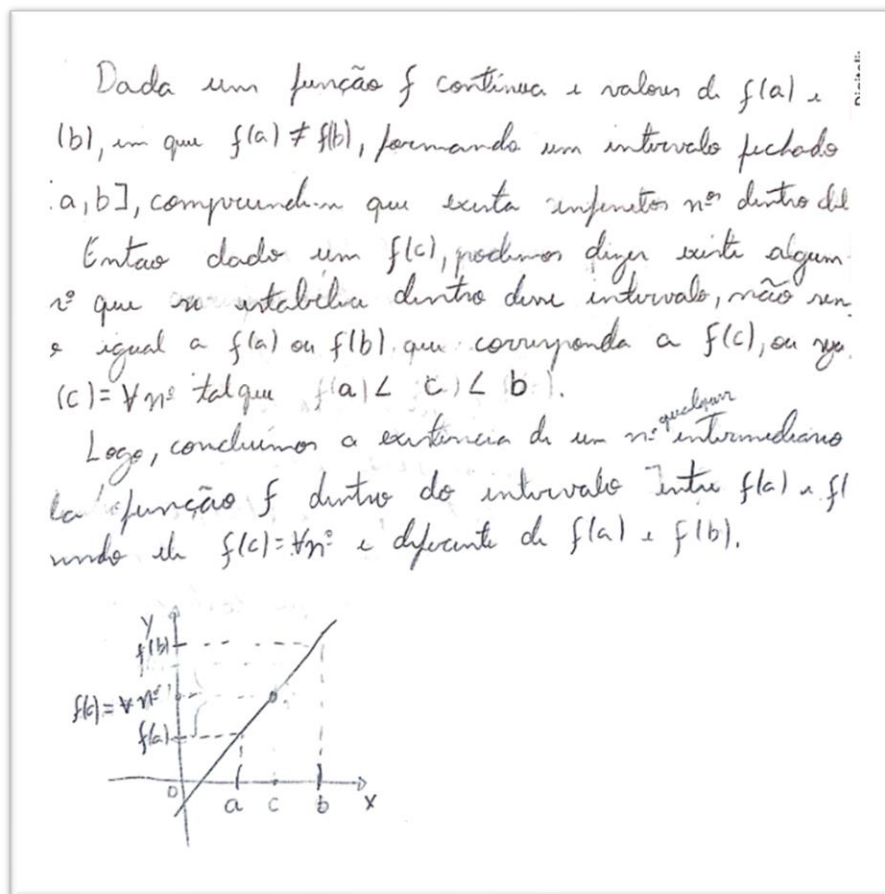 Dada um função f contínua e valores de f(a) e
(b), em que f(a) ≠ f(b), formando um intervalo fechado
a,b], compreende-se que exista infinitos nºs dentro del
Entao dado um f(c), podemos dizer existe algum
nº que se estabelece dentro desse intervalo, não sen
o igual a f(a) ou f(b) que corresponda a f(c), ou seja
(c) = ∀ nº tal que f(a) < c) < b
Logo, concluimos a existência de um nº qualquer intermediário
da função f dentro do intervalo entre f(a) e f(
sendo ele f(c) = ∀nº e diferente de f(a) e f(b).
y
f(b)
f(c) = ∀ nº
f(a)
0 a c b x